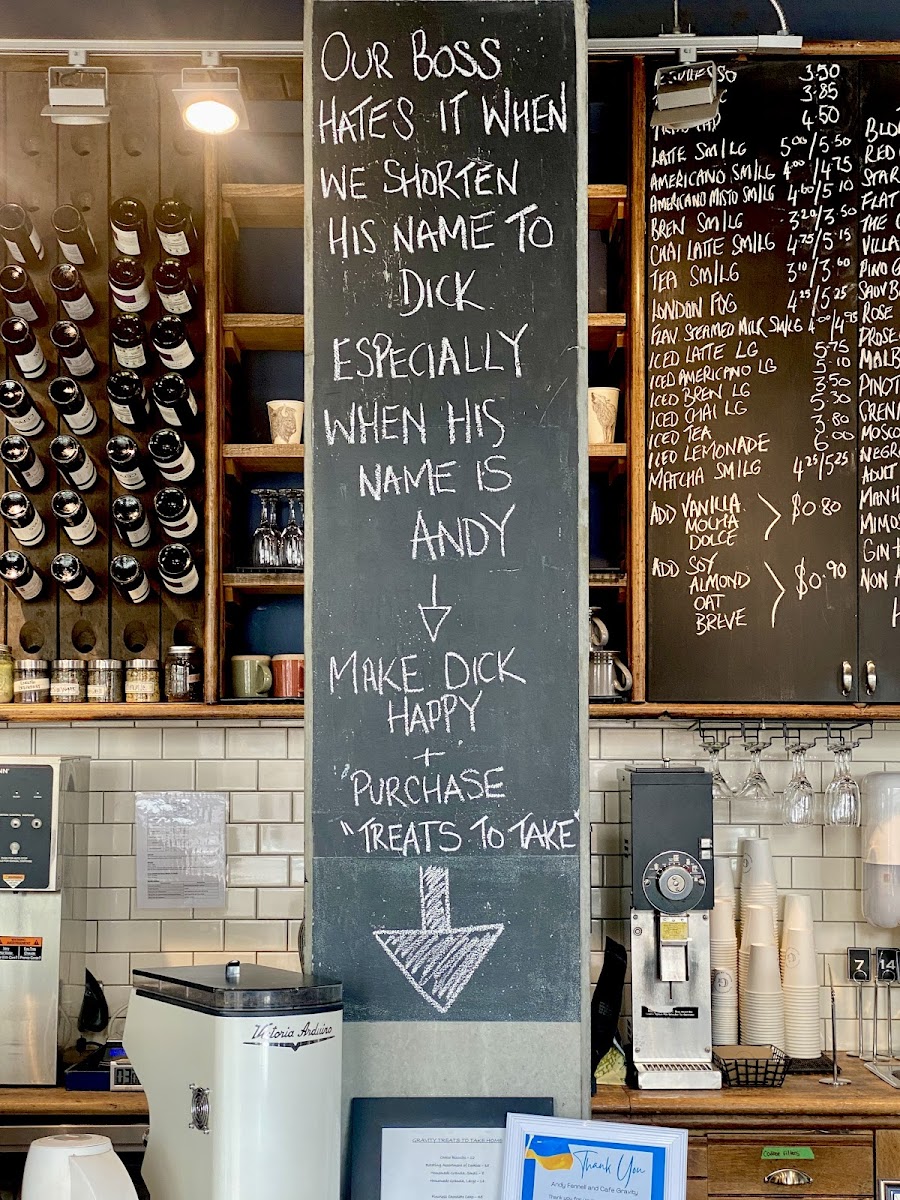 OUR BOSS
HATES IT WHEN
WE SHORTEN
HIS NAME TO
DICK
ESPECIALLY
WHEN HIS
NAME IS
ANDY
MAKE DICK
HAPPY
+
"PURCHASE
"TREATS TO TAKE"
3.50
3.85
4.50
LATTE SM/LG 5.00/5.50
AMERICANO SM/LG 4.00/4.75
AMERICANO MISTO SM/LG 4.60/5.10
BREW SM/LG 3.20/3.50
CHAI LATTE SM/LG 4.75/5.15
TEA SM/LG 3.10/3.60
LONDON FOG 4.25/5.25
FLAV. STEAMED MILK SM/LG 4.00/4.75
ICED LATTE LG 5.75
ICED AMERICANO LG 5.10
ICED BREW LG 3.50
ICED CHAI LG 5.30
ICED TEA 3.80
ICED LEMONADE 6.00
MATCHA SM/LG 4.25/5.25
ADD VANILLA
MOCHA
DOLCE
$0.80
ADD SOY
ALMOND
OAT
BREVE
$0.90
RED
FLAT
THE
VILLA
PINO
SAUV B
ROSE
PROSE
MALB
PINOT
GREN
MOSCO
NEGRO
ADULT
MANH
MIMOS
GIN +
NON A
Victoria Arduino
7
14
Coffee Filters
GRAVITY TREATS TO TAKE HOME
Thank You
Andy Fennell and Cafe Gravity